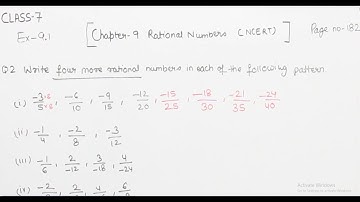 CLASS-7
Ex-9.1 [Chapter-9 Rational Numbers (NCERT)] Page no-182
Q.2 Write four more rational numbers in each of the following pattern.
(i) -3×8/5×8, -6/10, -9/15, -12/20, -15/25, -18/30, -21/35, -24/40
(ii) -1/4, -2/8, -3/12
(iii) -1/6, 2/-12, 3/-18, 4/-24
(iv) -2, 2, 4, 6
Activate Windows